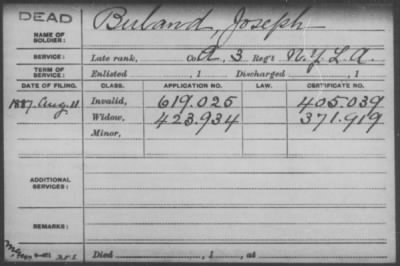 DEAD
NAME OF SOLDIER: Buland, Joseph
SERVICE: Late rank, Co. A, 3 Reg't N.Y.L.A.
TERM OF SERVICE: Enlisted , 1 Discharged , 1
DATE OF FILING. CLASS. APPLICATION NO. LAW. CERTIFICATE NO.
1887, Aug. 11 Invalid, 619.025 405.039
Widow, 423.934 371.919
Minor,
ADDITIONAL SERVICES:
REMARKS:
Died , 1 , at